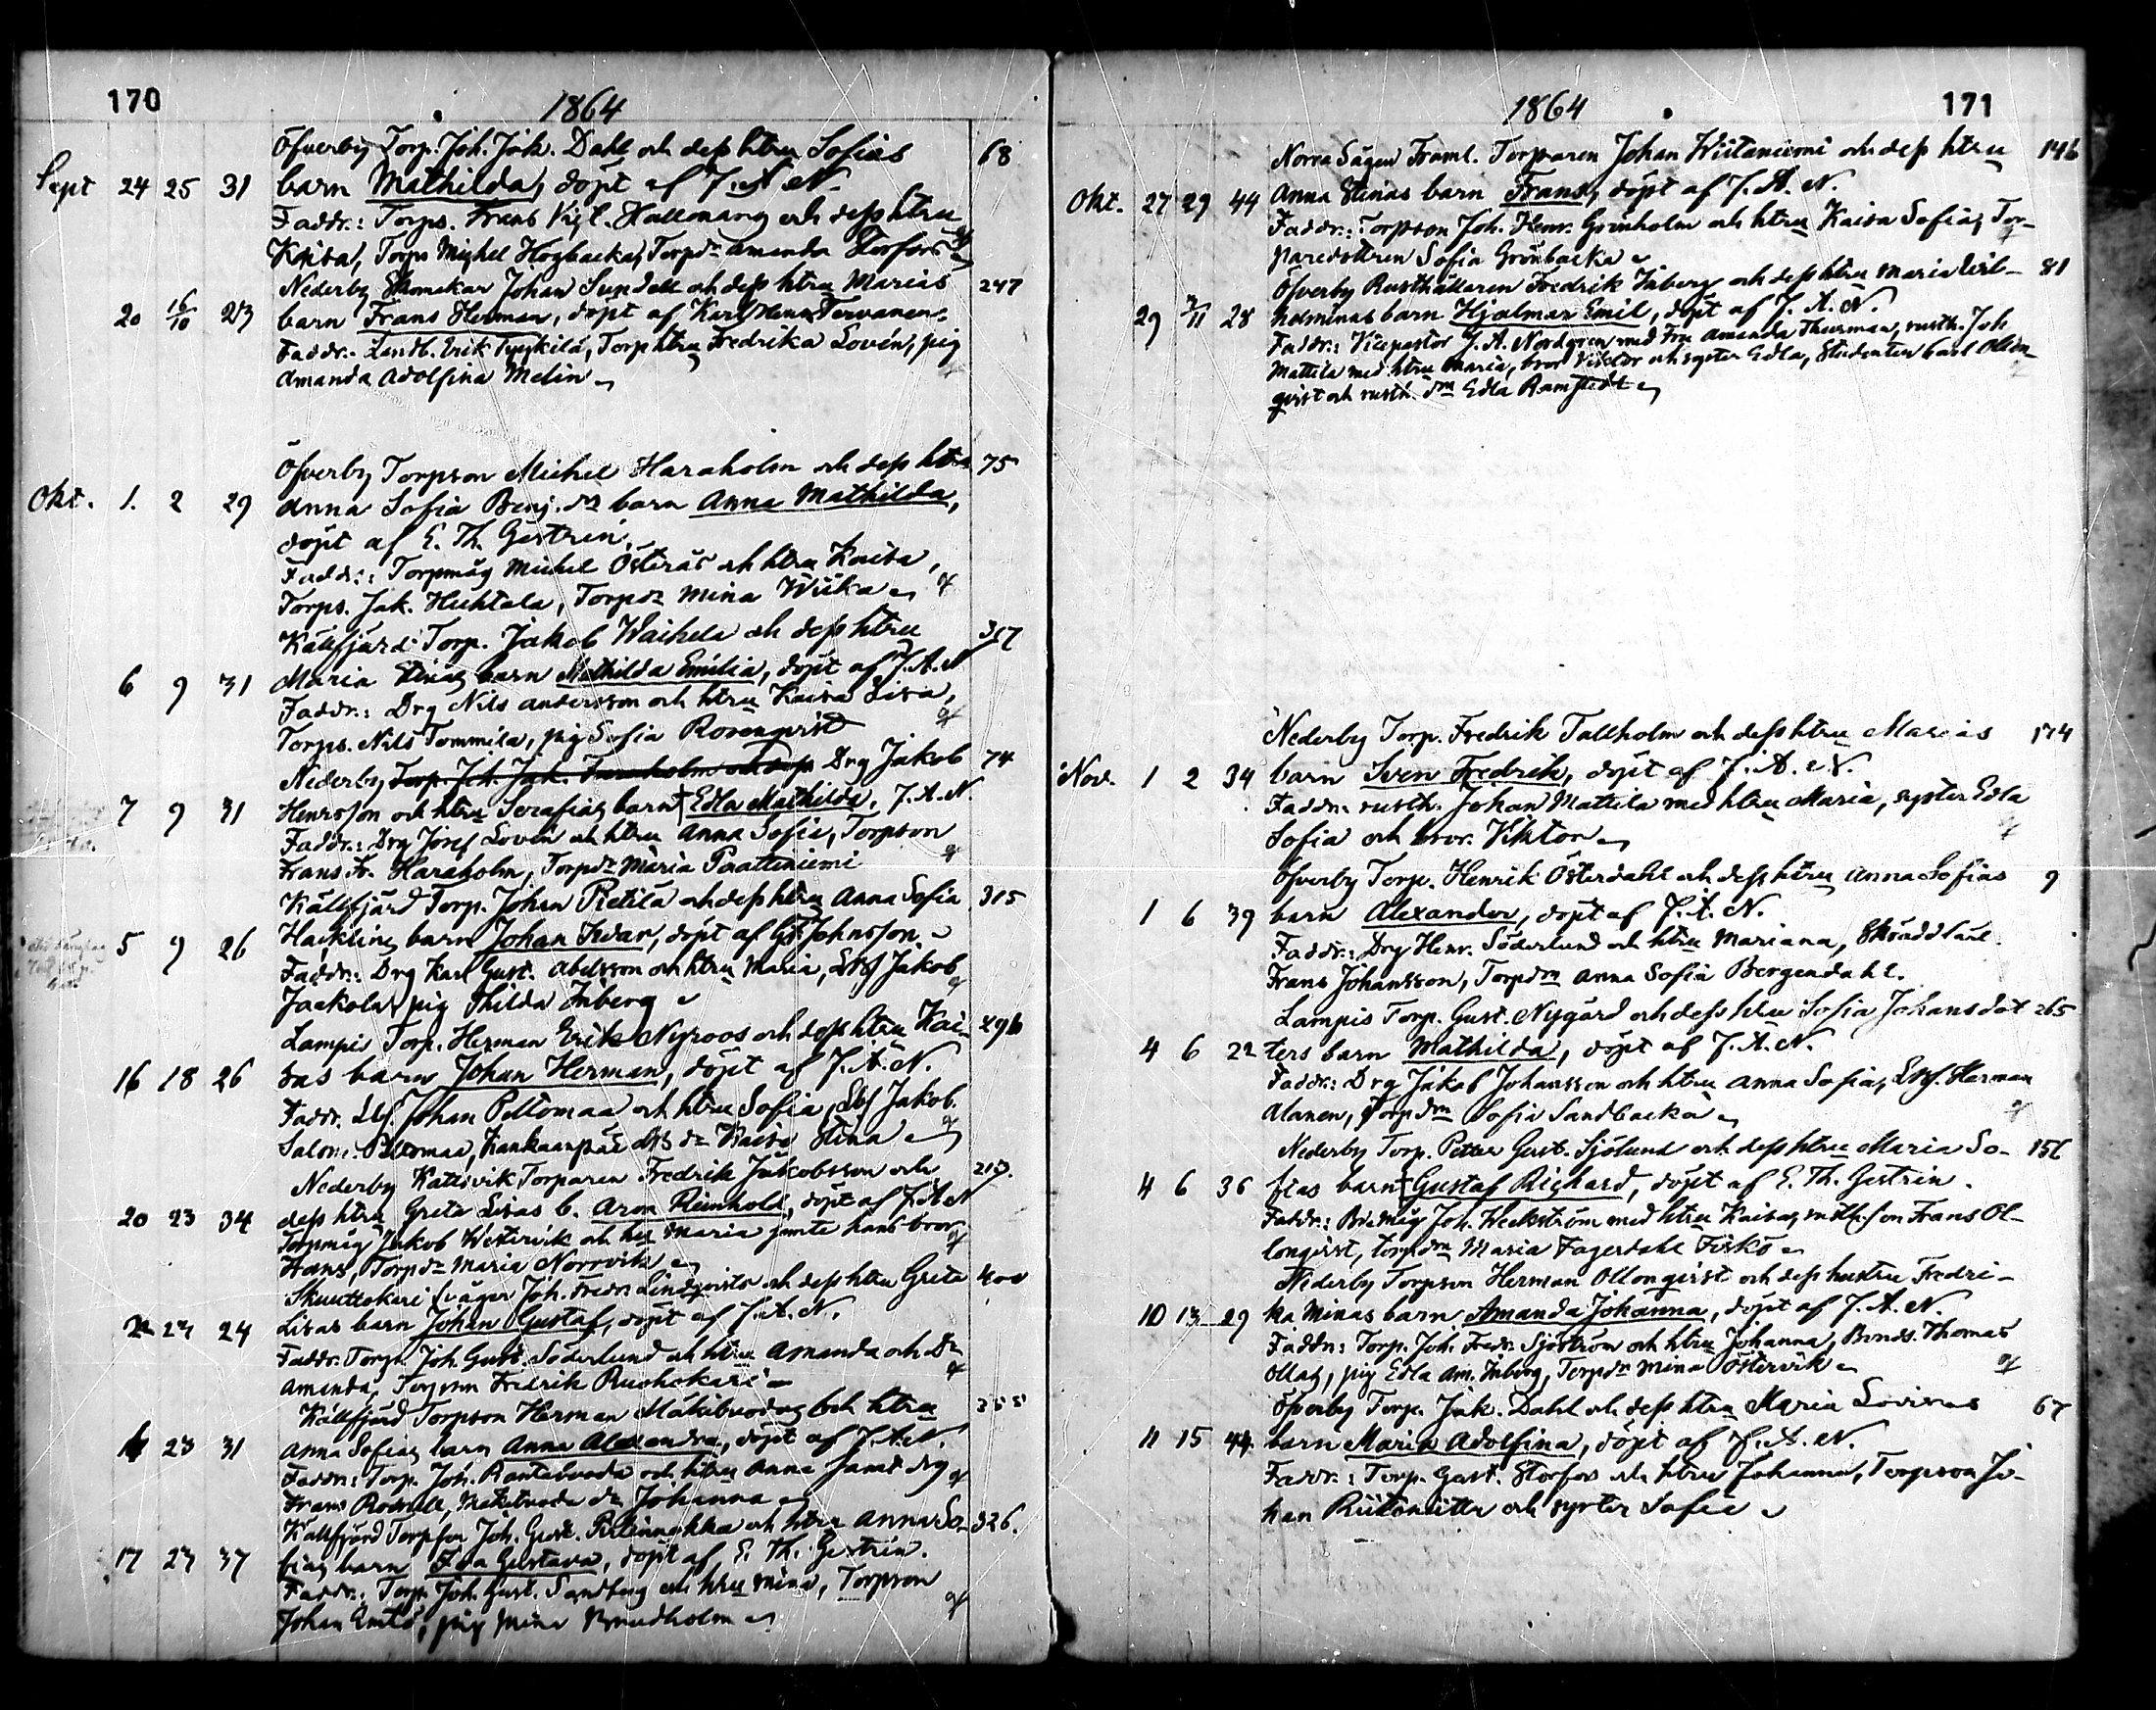 170
1864
Öfverby Torp. Joh. Jak. Dahl och dess htru Sofias 68
Sept 24 25 31 barn Mathilda, döpt af J. A. N.
Faddr.: Torps. Frans Vigt. Hallonäng och dess htru
Kaisa, Torps Michel Hogbacka, Torpdr Amanda Storfors
Nederby Skomakar Johan Sundell och dess htru Marias 247
20 16/10 23 barn Frans Herman, döpt af Karl Henr. Tervanen
Faddr. Landb. Erik Tyyskilä, Torp htru Fredrika Lovén, pig
Amanda Adolfina Melin
Öfverby Torpson Michel Haraholm och dess htru 75
Okt. 1. 2 29 Anna Sofia Benj. dr barn Anna Mathilda,
döpt af E. Th. Gestrin.
Faddr.: Torpmåg Michel Österås och htru Kaisa,
Torps. Jak. Huhtala, Torpdr Mina Wiika
Källfjärd Torp. Jakob Waihela och dess htru 317
6 9 31 Maria Stinas barn Mathilda Emilia, döpt af J. A. N
Faddr.: Drg Nils Andersson och htru Kaisa Lisa,
Torps. Nils Tommila, pig Sofia Rosenqvist
Nederby Torp. Joh. Jak. Haraholm och dess Drg Jakob 74
7 9 31 Henrsson och htru Serafias barn Edla Mathilda, J. A. N.
Faddr.: Drg Josef Lovén och htru Anna Sofia, Torpson
Frans Fr. Haraholm, Torpdr Maria Paatteniemi
Källfjärd Torp. Johan Pietilä och dess htru Anna Sofia 315
5 9 26 Hacklins barn Johan Ivar, döpt af G. Johnsson
Faddr.: Drg Karl Gust. Abelsson och htru Maria, Lbs Jakob
Jaakola, pig Thilda Inberg
Lampis Torp. Herman Erik Nyroos och dess htru Kai- 296
16 18 26 sas barn Johan Herman, döpt af J. A. N.
Faddr. Lbs. Johan Peltomaa och htru Sofia, Lbs Jakob
Salom. Peltomaa, Kankaanpää dr Kaisa Stina
Nederby Kattvik Torparen Fredrik Jakobsson och 217.
20 23 34 dess htru Greta Lisas b. Aron Reinhold, döpt af J. A. N
Torpmåg Jakob Westervik och htru Maria jemte hans bror
Hans, Torpdr Maria Norrvik
Skuuttokari Svåger Joh. Fredr. Lindqvists och dess htru Greta 400
22 23 24 Lisas barn Johan Gustaf, döpt af J. A. N.
Faddr. Torp. Joh. Gust. Söderlund och htru Amanda och dr
Amanda, Torpson Fredrik Ruohokari
Källfjärd Torpson Herman Mäkiluodos och htru 355
23 31 Anna Sofias barn Anna Alexandra, döpt af J. A. N.
Faddr.: Torp. Joh. Rantaluoda och htru Anna samt drg
Frans Rosnell, Mäkiluoda dr Johanna
Källfjärd Torpson Joh. Gust. Pirtinnokka och htru Anna So- 326.
17 23 37 fias barn Eva Gustava, döpt af E. Th. Gestrin.
Faddr.: Torp. Joh. Gust. Sandberg och htru Mina, Torpson
Johan Emtö, pig Mina Brudholm
171
1864
Norra Sågen Framl. Torparen Johan Wiitaniemi och dess htru 146
Okt. 27 29 44 Anna Stinas barn Frans, döpt af J. A. N.
Faddr.: Torpson Joh. Henr. Grönholm och htru Kaisa Sofia, Tor-
paredottren Sofia Grönbacka
Öfverby Rusthållaren Fredrik Inberg och dess htru Maria Wil- 81
29 2/11 28 helminas barn Hjalmar Emil, döpt af J. A. N.
Faddr.: Vicepastor J. A. Nordgren med Fru Amanda Thurman, rusth. Joh
Mattila med htru Maria, bror Viktor och syster Edla, Studenten Carl Ollon-
qvist och rusth. dr Edla Ramstedt
Nederby Torp. Fredrik Tallholm och dess htru Marias 174
Nov. 1 2 34 barn Sven Fredrik, döpt af J. A. N.
Faddr. rusth. Johan Mattila med htru Maria, syster Edla
Sofia och bror Viktor
Öfverby Torp. Henrik Österdahl och dess htru Anna Sofias 9
1 6 39 barn Alexander, döpt af J. A. N.
Faddr.: Drg Henr. Söderlund och htru Mariana, Skräddlärl.
Frans Johansson, Torpdr Anna Sofia Bergendahl.
Lampis Torp. Gust. Nygård och dess htru Sofia Johansdot 265
4 6 22 ters barn Mathilda, döpt af J. A. N.
Faddr.: Drg Jakob Johansson och htru Anna Sofia, Lbs. Herman
Alanen, Torpdr Sofia Sandbacka
Nederby Torp. Petter Gust. Sjölund och dess htru Maria So- 156
4 6 36 fias barn Gustaf Richard, döpt af E. Th. Gestrin.
Faddr.: Bdemåg Joh. Weckström med htru Kaisa, rusth.son Frans Ol-
lonqvist, torpdr Maria Fagerdahl Fiskö
Nederby Torpson Herman Ollonqvist och dess hustru Fredri-
10 13 29 ka Minas barn Amanda Johanna, döpt af J. A. N.
Faddr.: Torp. Joh. Fredr. Sjöström och htru Johanna, Bonds. Thomas
Ollas, pig Edla Am. Inberg, Torpdr Mina Östervik
Öfverby Torp. Jak. Dahl och dess htru Maria Lovisas 67
11 15 44. barn Maria Adolfina, döpt af J. A. N.
Faddr.: Torp. Gust. Storfors och htru Johanna, Torpson Jo-
han Riitonitta och syster Sofia